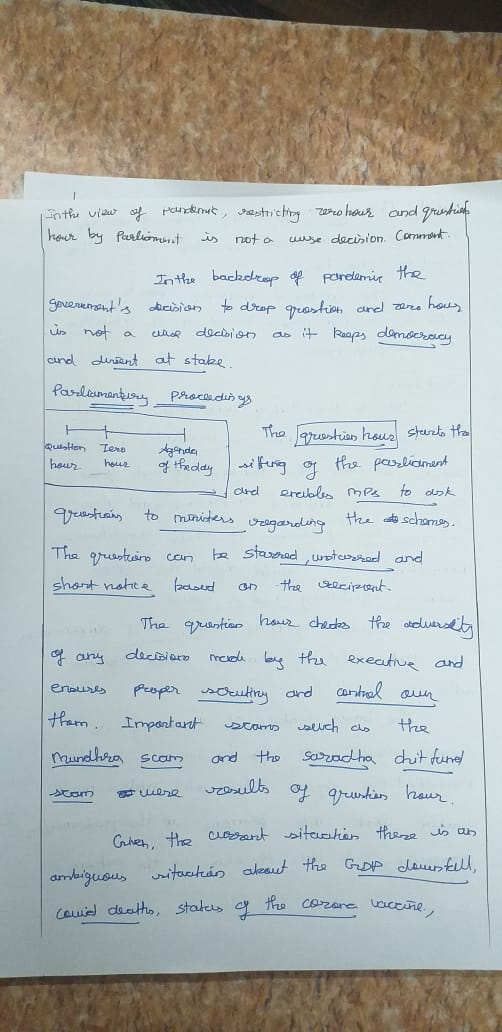 In the view of Pandemic, restricting zero hour and question
hour by Parliament is not a wise decision. Comment.
In the backdrop of pandemic the
government's decision to drop question and zero hour
is not a wise decision as it keeps democracy
and dissent at stake.
Parliamentary Proceedings
Question hour
Zero hour
Agenda of the day
The question hour starts the
sitting of the parliament
and enables MPs to ask
questions to ministers regarding the schemes.
The questions can be starred, unstarred and
short notice based on the recipient.
The question hour checks the adversity
of any decisions made by the executive and
ensures proper scrutiny and control over
them. Important scams such as the
Mundhra scam and the saradha chit fund
scam were results of question hour.
Given, the current situation there is an
ambiguous situation about the GDP downfall,
covid deaths, status of the corona vaccine,